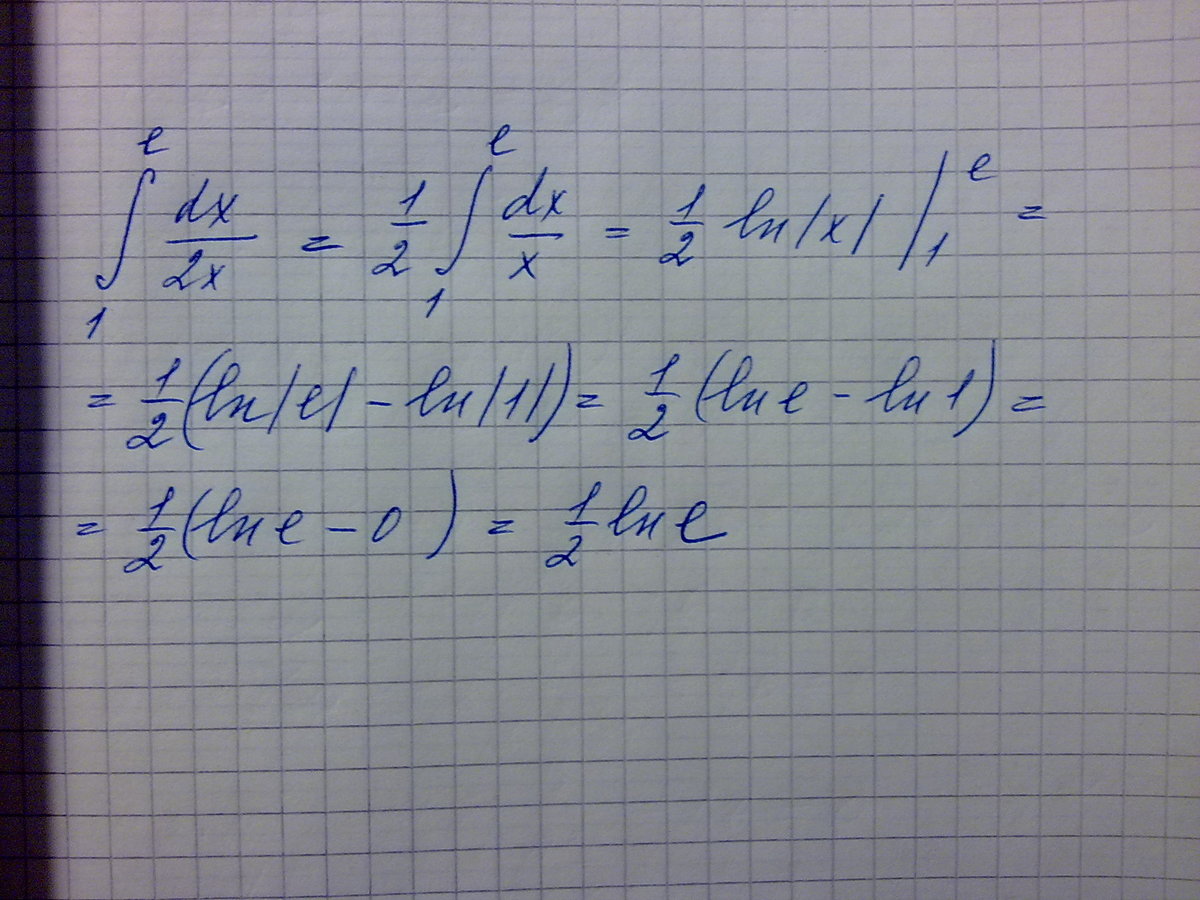 ∫₁ᵉ dx/2x = 1/2 ∫₁ᵉ dx/x = 1/2 ln|x| |₁ᵉ =
= 1/2 (ln|e| - ln|1|) = 1/2 (ln e - ln 1) =
= 1/2 (ln e - 0) = 1/2 ln e